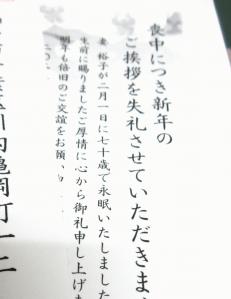 喪中につき新年の
ご挨拶を失礼させていただきま
妻 裕子が二月一日に七十歳で永眠いたしました
生前に賜りましたご厚情に心から御礼申し上げ
明年も倍旧のご交誼をお願い
二〇
川内亀岡町一二